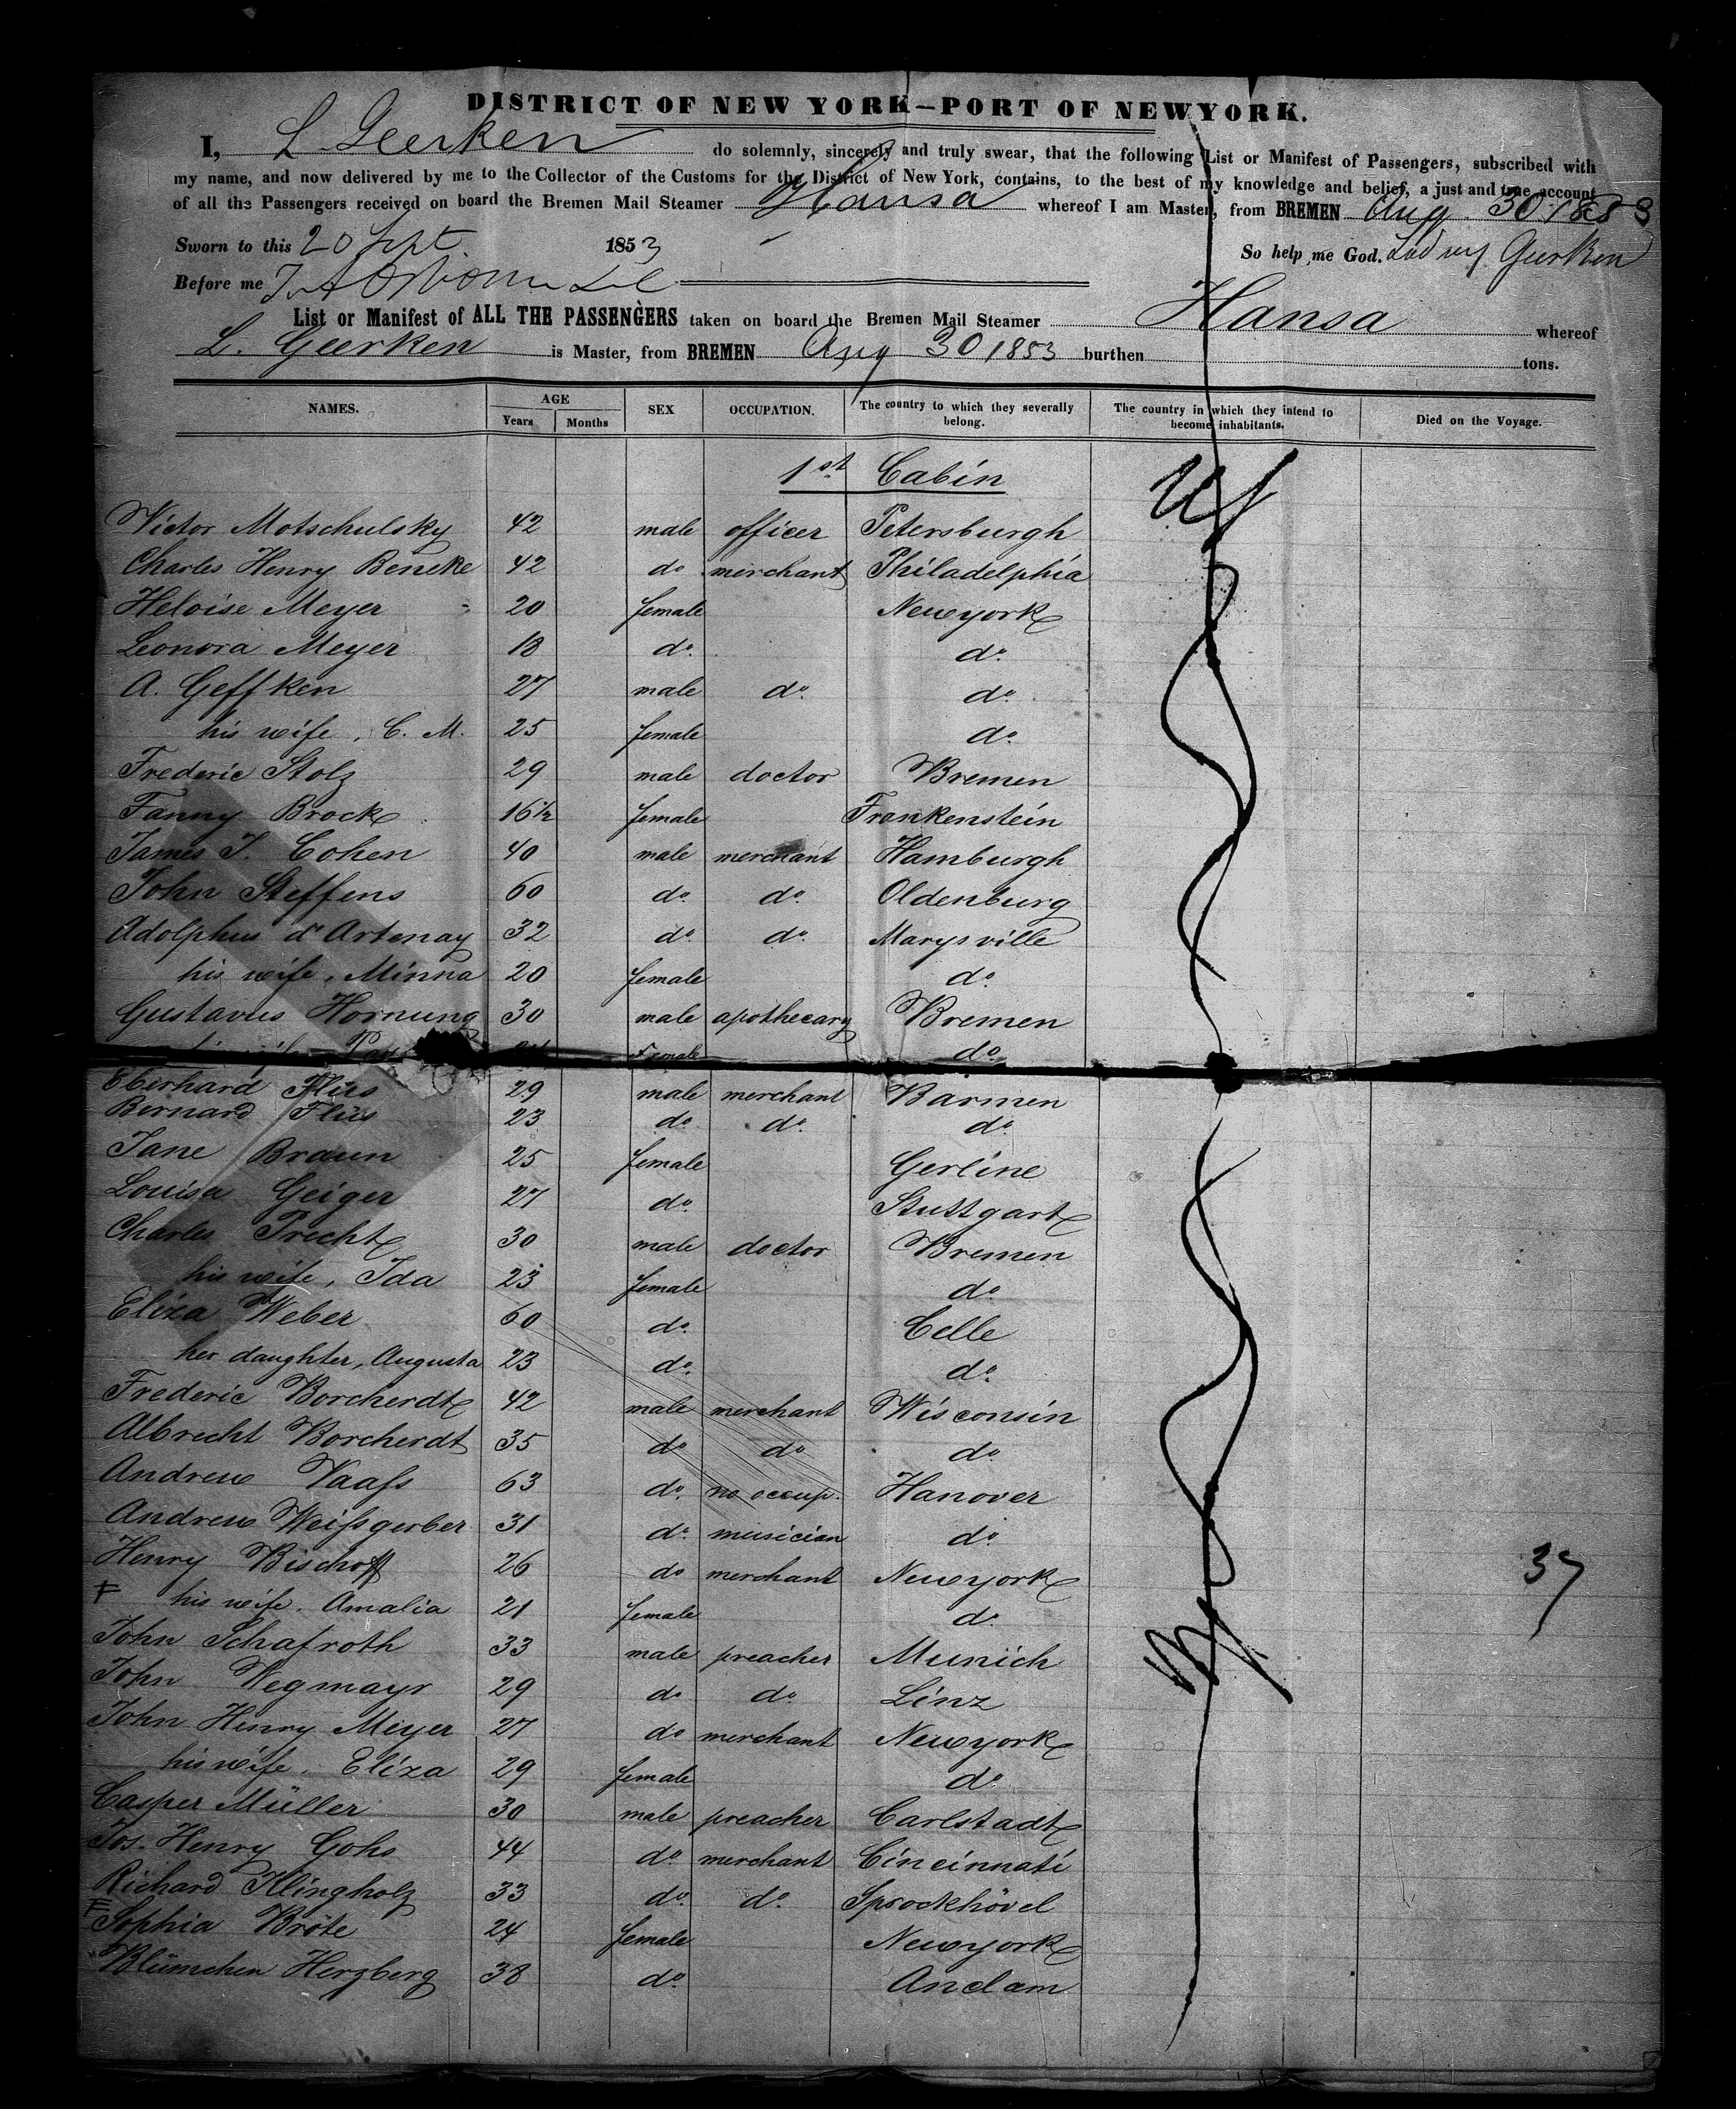 DISTRICT OF NEW YORK—PORT OF NEW YORK.
I, L Geerken do solemnly, sincerely and truly swear, that the following List or Manifest of Passengers, subscribed with
my name, and now delivered by me to the Collector of the Customs for the District of New York, contains, to the best of my knowledge and belief, a just and true account
of all the Passengers received on board the Bremen Mail Steamer Hansa whereof I am Master, from BREMEN Aug 30 1853
Sworn to this 20 Sept. 1853 So help me God. Ludwig Geerken
Before me
List or Manifest of ALL THE PASSENGERS taken on board the Bremen Mail Steamer Hansa whereof
L. Geerken is Master, from BREMEN Aug 30 1853 burthen tons.
NAMES. AGE Years Months SEX OCCUPATION. The country to which they severally belong. The country in which they intend to become inhabitants. Died on the Voyage.
1st Cabin
Victor Motschulsky 42 male officer Petersburgh
Charles Henry Beneke 42 do merchant Philadelphia
Heloise Meyer 20 female Newyork
Leonora Meyer 18 do. do.
A. Geffken 27 male do. do.
his wife, C. M. 25 female do.
Frederic Stolz 29 male doctor Bremen
Fanny Brock 16½ female Frankenstein
James J. Cohen 40 male merchant Hamburgh
John Steffens 60 do. do. Oldenburg
Adolphus d'Artenay 32 do. do. Marysville
his wife, Minna 20 female do.
Gustavus Hornung 30 male apothecary Bremen
his wife female do.
Eberhard Flües 29 male merchant Barmen
Bernard Flües 23 do. do. do.
Jane Braun 25 female Gerline
Louisa Geiger 27 do. Stuttgart
Charles Precht 30 male doctor Bremen
his wife, Ida 23 female do.
Eliza Weber 60 do. Celle
her daughter, Augusta 23 do. do.
Frederic Borcherdt 42 male merchant Wisconsin
Albrecht Borcherdt 35 do do do.
Andrew Vaaſs 63 do. no occup. Hanover
Andrew Weiſsgerber 31 do. musician do.
Henry Bischoff 26 do merchant Newyork
F his wife, Amalia 21 female do.
37
John Schafroth 33 male preacher Munich
John Wegmayr 29 do do. Linz
John Henry Meyer 27 do merchant Newyork
his wife, Eliza 29 female do.
Casper Müller 30 male preacher Carlstadt
Jos. Henry Gohs 44 do. merchant Cincinnati
Richard Klingholz 33 do. do. Sprockhövel
F Sophia Bröte 24 female Newyork
Blümchen Herzberg 38 do. Anclam